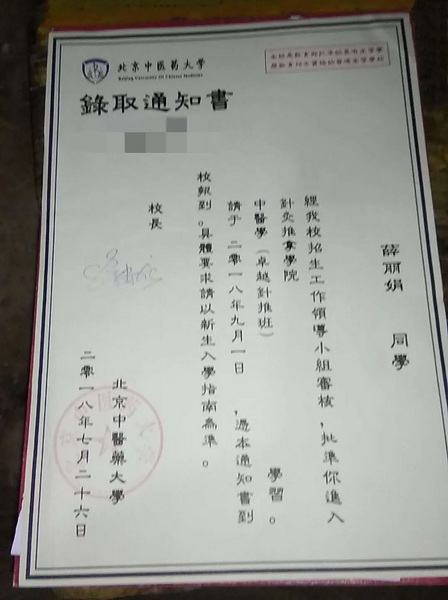 北京中医药大学
Beijing University Of Chinese Medicine
錄取通知書
薛丽娟 同學
經我校招生工作領導小組審核，批準你進入
針灸推拿學院
中醫學（卓越針推班） 學習。
請于 二零一八年九月一日 ，憑本通知書到
校報到。具體要求請以新生入學指南為準。
校長
北京中醫藥大學
二零一八年七月二十六日